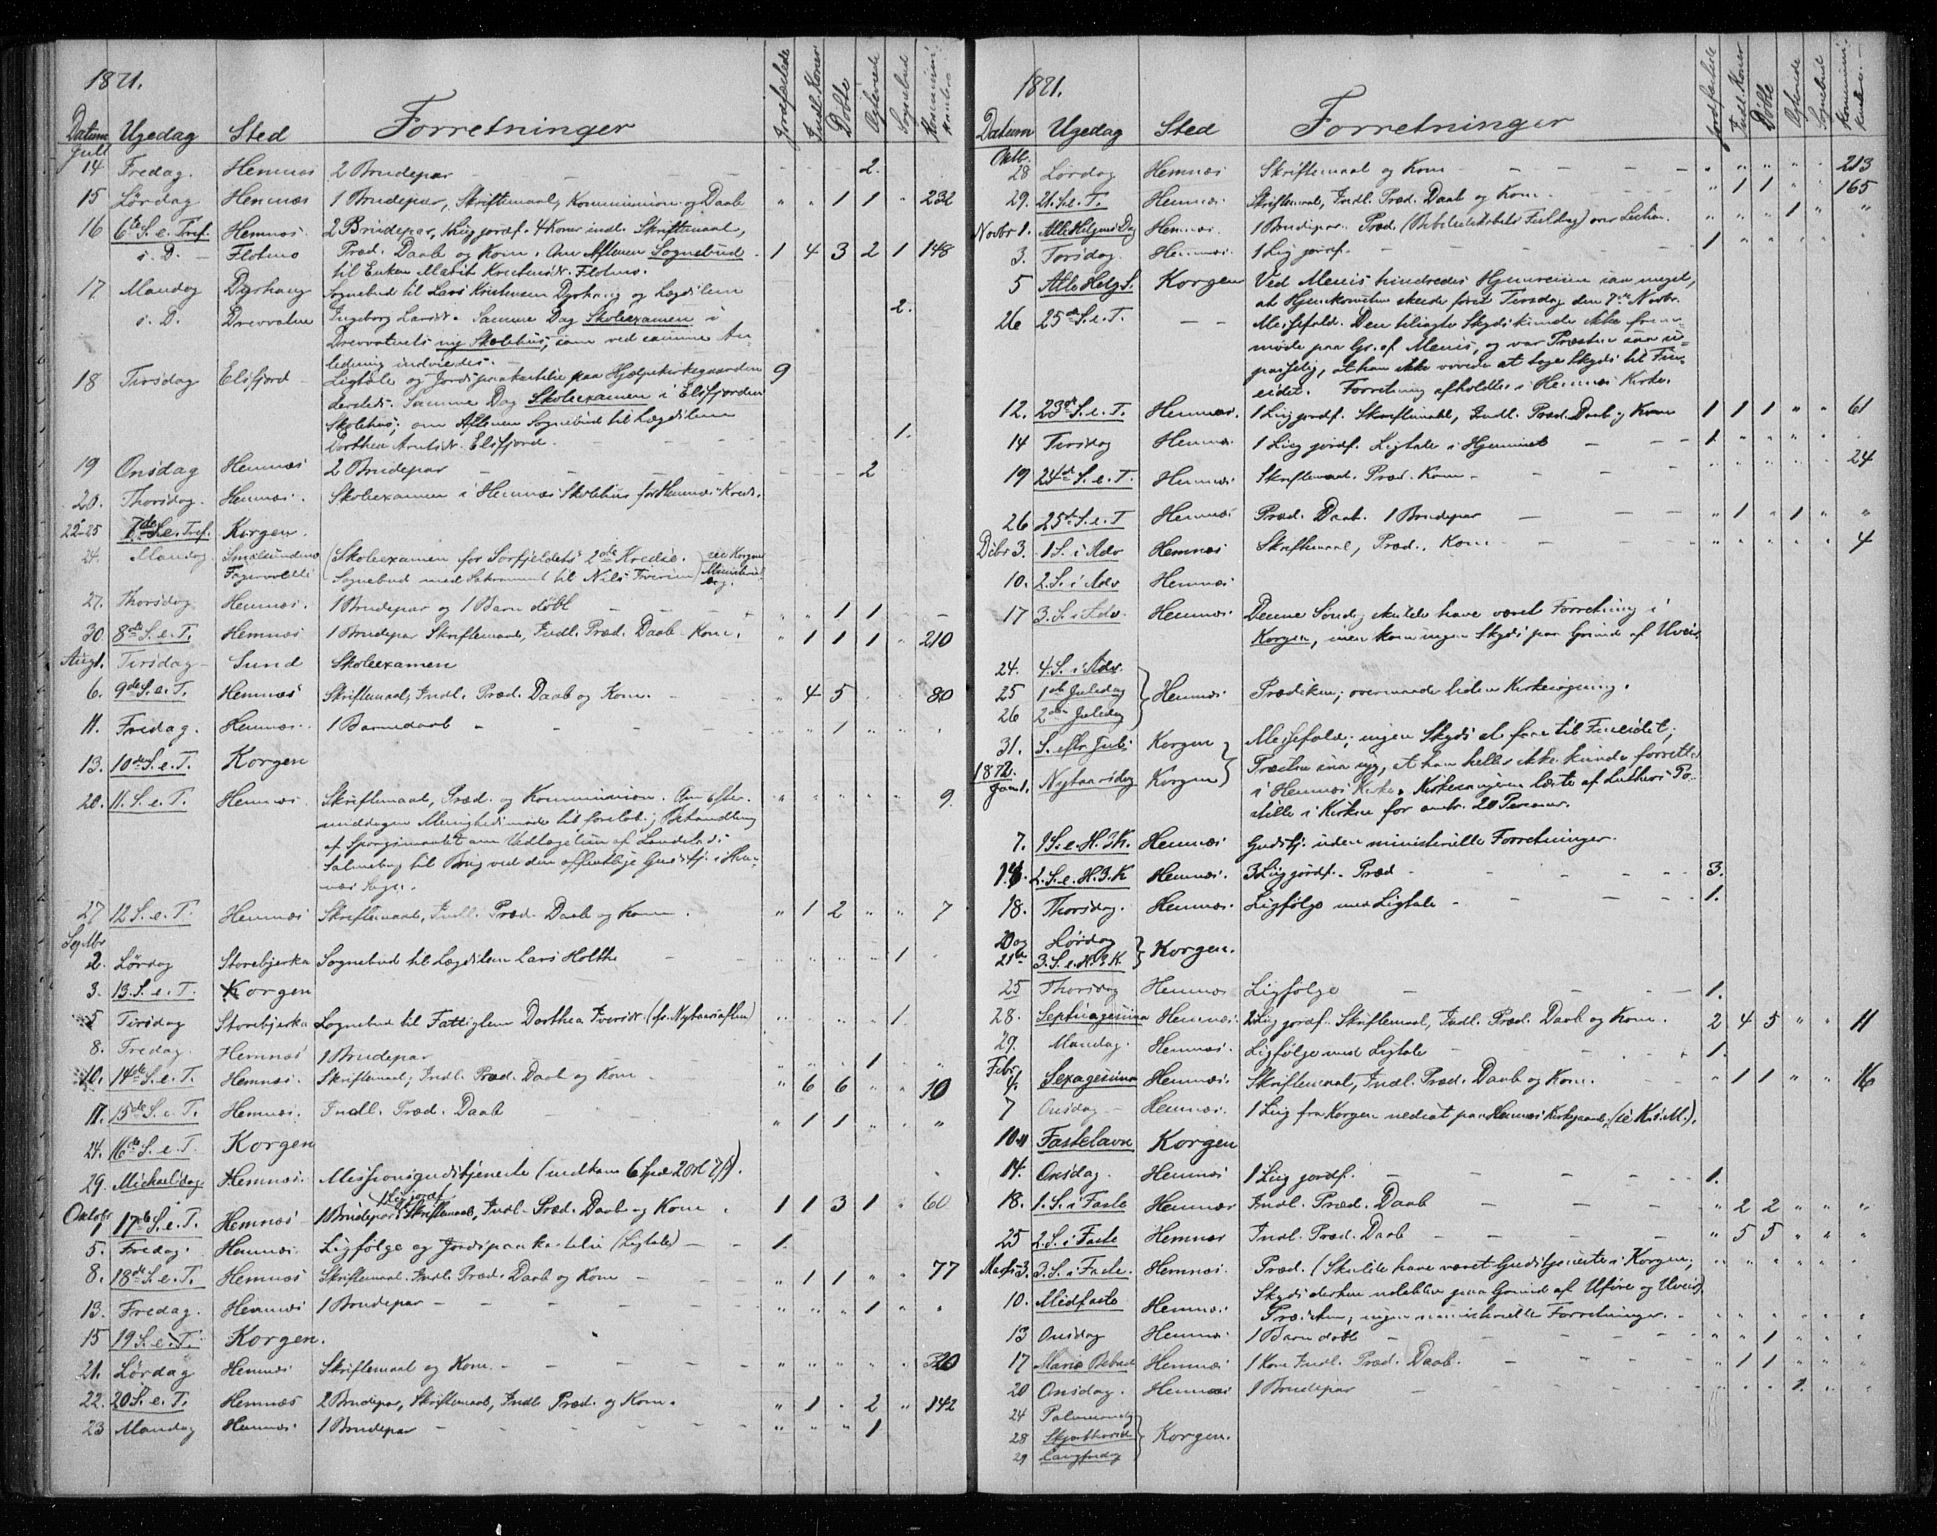 1871.
Datum Ugedag Sted Forretninger Jordfæstede Indl. Koner Døbte Ægteviede Sognebud Kommuni-
Juli
14 Fredag. Hemnæs 2 Brudepar - - 2.
15 Lørdag Hemnæs 1 Brudepar, Skriftemaal, Kommunion og Daab " " 1 1 " 232
16 6te S. e. Tref. Hemnæs. 2 Brudepar, 1 Lig jordf. 4 Koner indl. Skriftemaal,
s. D. - Flotmo Præd. Daab og Kom. Om Aftenen Sognebud 1 4 3 2 1 148
til Enken Marit Kristensdr. Flotmo.
17 Mandag Dyrhaug Sognebud til Lars Kristensen Dyrhaug og Lægdslem
s. D. Drevvatne Ingeborg Larsdr. Samme Dag Skoleexamen i 2.
Drevvatnets ny Skolehus, som ved samme An-
ledning indviedes. -
18 Tirsdag Elsfjord Ligtale og Jordspaakastelse paa Hjælpekirkegaarden 9
dersteds. Samme Dag Skoleexamen i Elsfjorden
Skolehus; om Aftenen Sognebud til Lægdslem
Dorthea Arntsdr. Elsfjord. - 1.
19 Onsdag Hemnæs 2 Brudepar - - 2
20. Thorsdag. Hemnæs. Skoleexamen i Hemnæs Skolehus for Hemnæs Kreds.
22-25 7de S. e. Tref. Korgen.
24. Mandag Fagervolli (Skoleexamen for Sorfjeldets 2de Kredse.
Sognebud med Sakrament til Nils Iversen) see Korgens Ministerialbog.
27. Thorsdag Hemnæs. 1 Brudepar og 1 Barn døbt - - 1 1 -
30 8de S. e. T. Hemnæs 1 Brudepar Skriftemaal, Indl. Præd. Daab - Kom. " 1 1 1 " 210
Augt. Tirsdag - Sund Skoleexamen
6. 9de S. e. T. Hemnæs Skriftemaal, Indl. Præd. Daab og Kom. - " 4 5 80
11. Fredag. Hemnæs. 1 Barnedaab - - 1
13. 10de S. e. T. Korgen
20. 11. S. e. T. Hemnæs. Skriftemaal, Præd. og Kommunion. Om Efter- " " " " " 9.
middagen Menighedsmøde til foreløb. Behandling
af Spørgsmaalet om Vedtagelsen af Landstads
Salmebog til Brug ved den offentlige Gudstj. i Hem-
næs Sogn.
27 12 S. e. T. Hemnæs Skriftemaal, Indl. Præd. Daab og Kom. " 1 2 " " 7
Septbr
2. Lørdag Storebjerka Sognebud til Lægdslem Lars Holthe 1 -
3. 13. S. e. T. Korgen
5 Tirsdag Storebjerka Sognebud til Fattiglem Dorthea Iversdr. (fr. Nytaarsaften) 1
8. Fredag. Hemnæs 1 Brudepar 1
10. 14de S. e. T. Hemnæs. Skriftemaal, Indl. Præd. Daab og Kom - " 6 6 " " 10
17. 15de S. e. T. Hemnæs. Indl. Præd. Daab - - " 1 1 " " "
24. 16de S. e. T. Korgen
29. Michaelsdag Hemnæs. Missionsgudstjeneste (indkom 6 Spd 20 sk 7/).
1 Lig jordf.
Oktobr 1 17de S. e. T. Hemnæs 1 Brudepar, Skriftemaal, Indl. Præd. Daab og Kom. 1 1 3 1 " 60
5. Fredag. Hemnæs. Ligfølge og Jordspaakastelse (Ligtale) - - 1.
8. 18de S. e. T. Hemnæs Skriftemaal. Indl. Præd. Daab og Kom - " 1 1 " " 77
13. Fredag. Hemnæs 1 Brudepar - - - " " " 1 " "
15 19 S. e. T. Korgen.
21. Lørdag Hemnæs Skriftemaal og Kom. - - " " " " "
22. 20 S. e. T. Hemnæs 2 Brudepar, Skriftemaal, Indl. Præd. og Kom. " 1 " 2 " 142
23 Mandag Hemnæs 1 Brudepar - - " " " 1
1871.
Datum Ugedag Sted Forretninger Jordfæstede Indl. Koner Døbte Ægteviede Sognebud Kommuni-
Oktbr.
28 Lørdag Hemnæs Skriftemaal og Kom - - - " " " " 213
29. 21. S. e. T. Hemnæs. Skriftemaal, Indl. Præd. Daab og Kom. " 1 1 " " 165
Novbr 1. Alle Helgens Dag Hemnæs. 1 Brudepar. Præd. (Bibelselskabets Festdag) over Lectien. " " " 1 " "
3. Torsdag. Hemnæs. 1 Lig jordf. - - 1 " " " "
5 Alle Helg. S. Korgen Ved Menis hindredes Hjemreisen saa meget,
at Hjemkomsten skede først Tirsdag den 7de Novbr.
26 25de S. e. T. - - Messefald. Den tilsagte Skyds kunde ikke frem-
møde paa Gr. af Menis, og var Præsten saa u-
passelig, at han ikke vovede at tage Skyds til Fin-
eidet. Forretning afholdtes i Hemnæs Kirke.
12. 23de S. e. T. Hemnæs. 1 Lig jordf. Skriftemaal, Indl. Præd. Daab og Kom 1 1 1 " " 61
14 Tirsdag Hemnæs 1 Lig jordf. Ligtale i Hjemmet - - 1. " " " " "
19 24de S. e. T. Hemnæs Skriftemaal. Præd. Kom - " " " " " 24
26 25de S. e. T Hemnæs Præd. Daab. 1 Brudepar - - - " 1 " 1 " "
Debr 3. 1 S. i Adv Hemnæs Skriftemaal, Præd. Kom - - " " " " " 4
10. 2. S. i Adv Hemnæs
17 3. S. i Adv. Hemnæs Denne Søndag skulde have været Forretning i
Korgen, men kom ingen Skyds paa Grund af Uveir.
24. 4. S. i Adv.
25 1ste Juledag } Hemnæs Prædiken; overmaade liden Kirkesøgning.
26 2den Juledag
31. S. eftr Jul: Korgen Messefald; ingen Skyds at faae til Fineidet;
1872. Præsten saa syg, at han heller ikke kunde forrette
Janr 1. Nytaarsdag Korgen i Hemnæs Kirke. Kirkesangeren læste af Luthers Po-
stille i Kirken for omtr. 20 Personer.
7. 1 S. e. H. 3 K. Hemnæs Gudstj. uden ministerielle Forretninger.
14. 2. S. e. H. 3. K Hemnæs. 3 Lig jordf. - Præd - 3.
18. Thorsdag. Hemnæs. Ligfølge med Ligtale - - 1.
20 og Lørdag
21de 3. S. e. H. 3 K. } Korgen.
25 Thorsdag Hemnæs Ligfølge - - 1.
28. Septuagesima Hemnæs. 2 Lig jordf. Skriftemaal, Indl. Præd. Daab og Kom. 2 4 5 " " 11
29. Mandag. Hemnæs. Ligfølge med Ligtale - - 1.
Febr.
4. Sexagesima Hemnæs. Skriftemaal, Indl. Præd. Daab og Kom. " 1 1 " " 16
7 Onsdag - Hemnæs. 1 Lig fra Korgen nedsat paa Hemnæs Kirkegaard. (se K's M.).
10-11 Fastelavn Korgen
14. Onsdag. Hemnæs 1 Lig jordf. - - 1.
18. 1. S. i Faste Hemnæs Indl. Præd. Daab - - " 2 2 " " "
25 2. S. i Faste Hemnæs Indl. Præd. Daab - - " 5 5 " " "
Marts 3. 3. S. i Faste. Hemnæs. Præd. (Skulde have været Gudstjeneste i Korgen; " " " " " "
Skyds dertil udeblev paa Grund af Uføre og Uveir).
10. Midfaste Hemnæs. Prædiken; ingen ministerielle Forretninger. -
13 Onsdag Hemnæs. 1 Barn døbt - - " " 1 " "
17 Mariæ Bebud Hemnæs 1 Kone Indl. Præd. Daab. - - " 1 1 " " "
20 Onsdag. Hemnæs 1 Brudepar - - 1. " "
24 Palmesøndag
28 Skjærthorsd } Korgen.
29 Langfredag